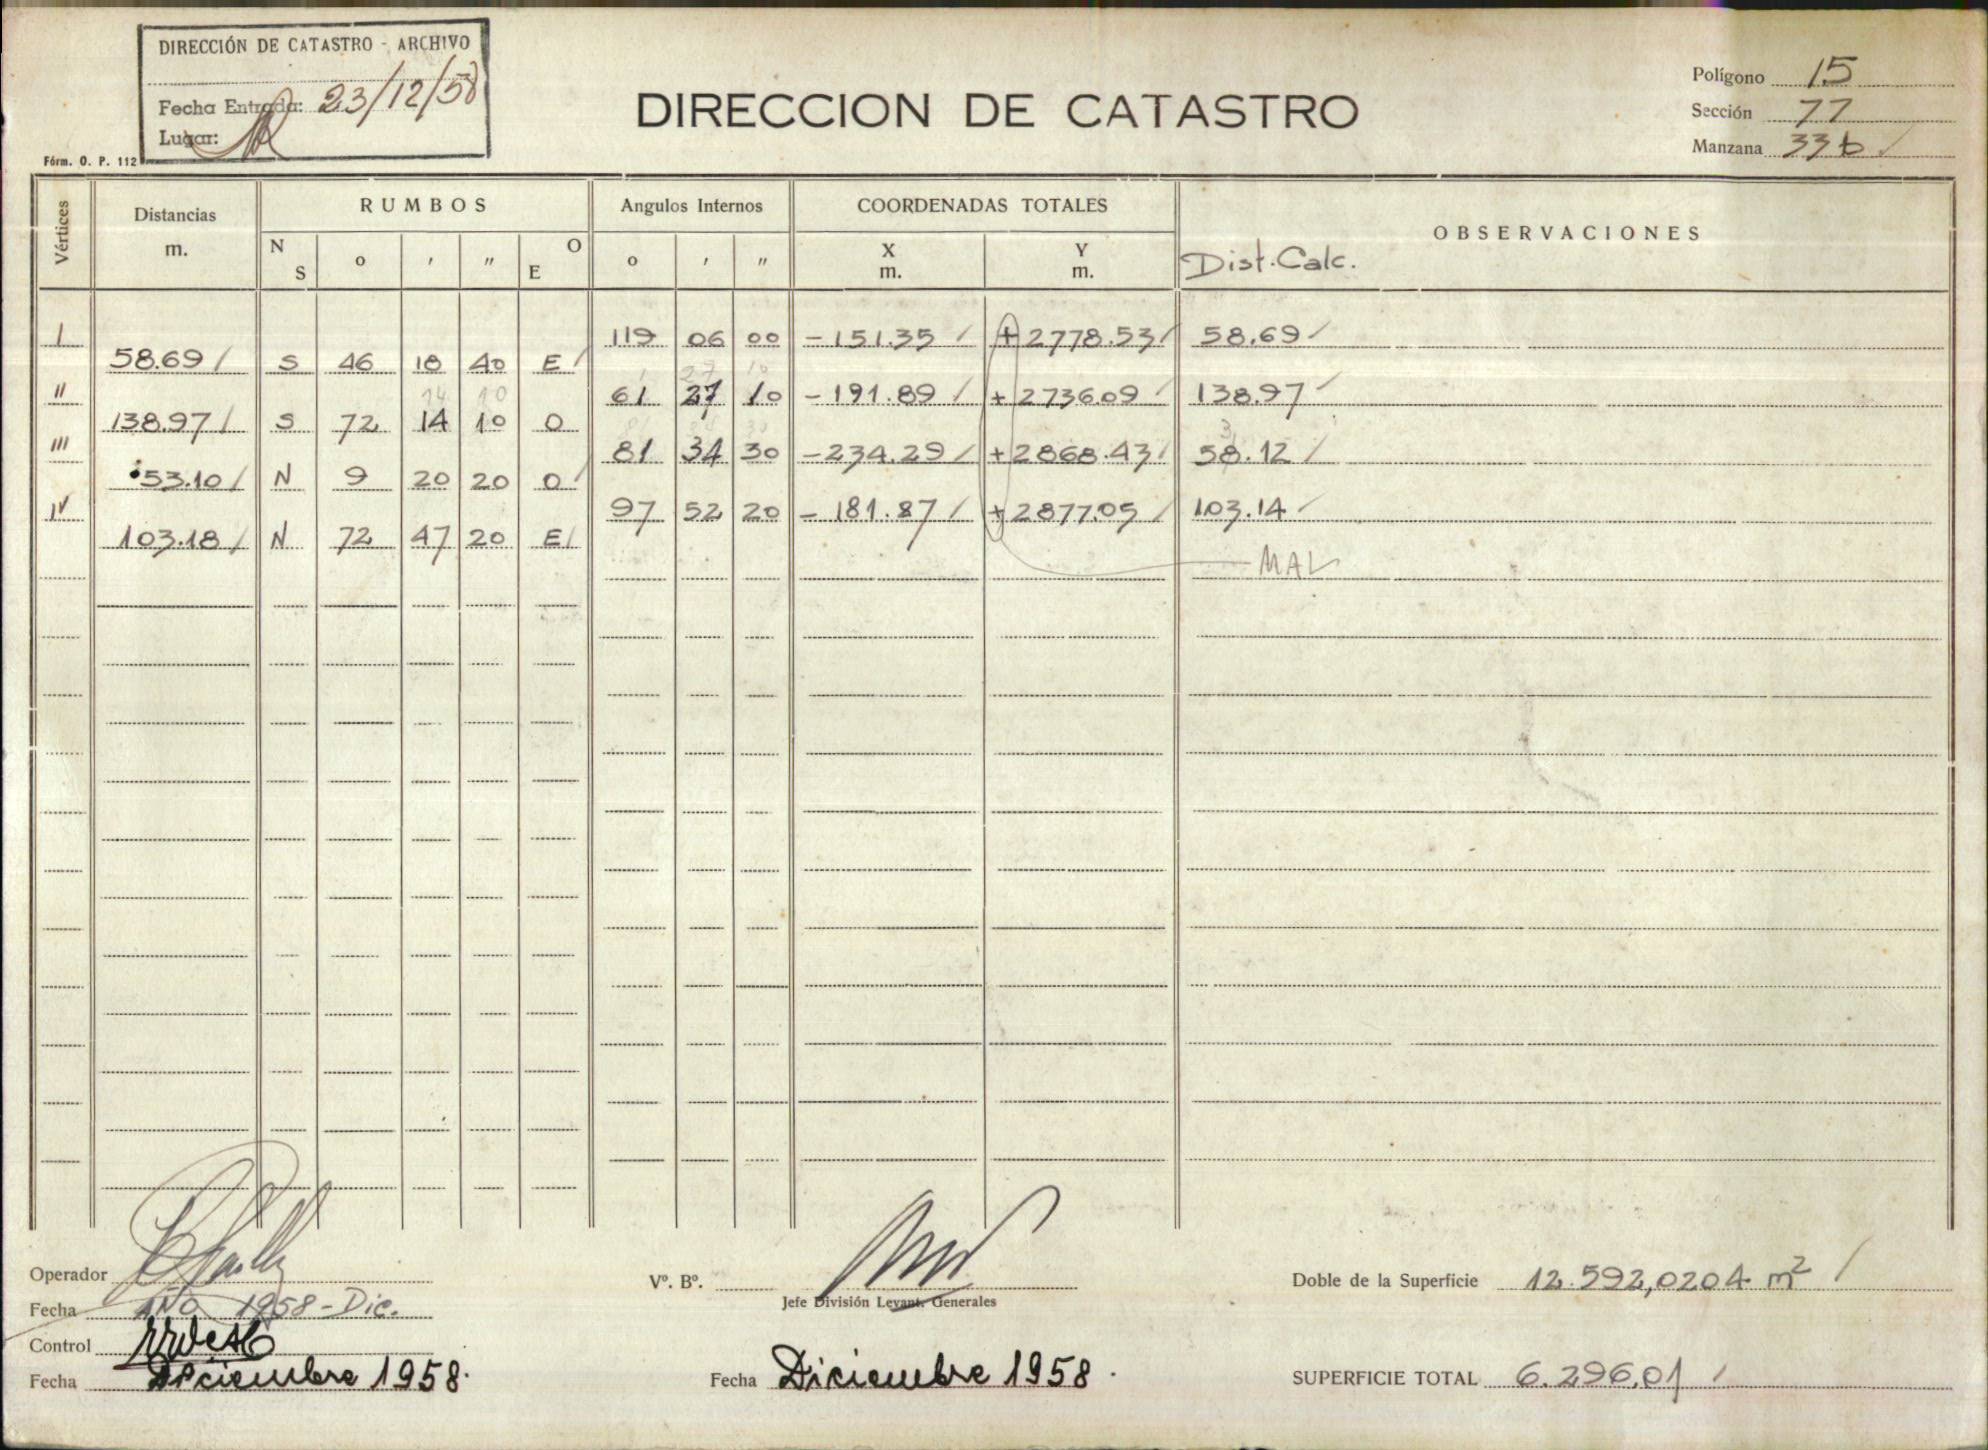 DIRECCIÓN DE CATASTRO - ARCHIVO
Fecha Entrada: 23/12/58
Lugar:
Fórm. O. P. 112
DIRECCION DE CATASTRO
Polígono 15
Sección 77
Manzana 33b /
Vértices Distancias m. RUMBOS Angulos Internos COORDENADAS TOTALES OBSERVACIONES
N S o ' " E O o ' " X m. Y m. Dist. Calc.
I 119 06 00 -151.35 / +2778.53 / 58.69 /
58.69 / S 46 18 40 E /
27 10
II 61 27 10 -191.89 / +2736.09 / 138.97 /
14 10
138.97 / S 72 14 10 O
III 81 34 30 -234.29 / +2868.43 / 58.12 /
3
53.10 / N 9 20 20 O /
IV 97 52 20 -181.87 / +2877.05 / 103.14 /
103.18 / N 72 47 20 E /
MAL
Operador
Fecha AÑO 1958-Dic.
Control
Fecha Diciembre 1958.
Vº. Bº.
Jefe División Levant. Generales
Fecha Diciembre 1958.
Doble de la Superficie 12.592,0204 m² /
SUPERFICIE TOTAL 6.296,01 /